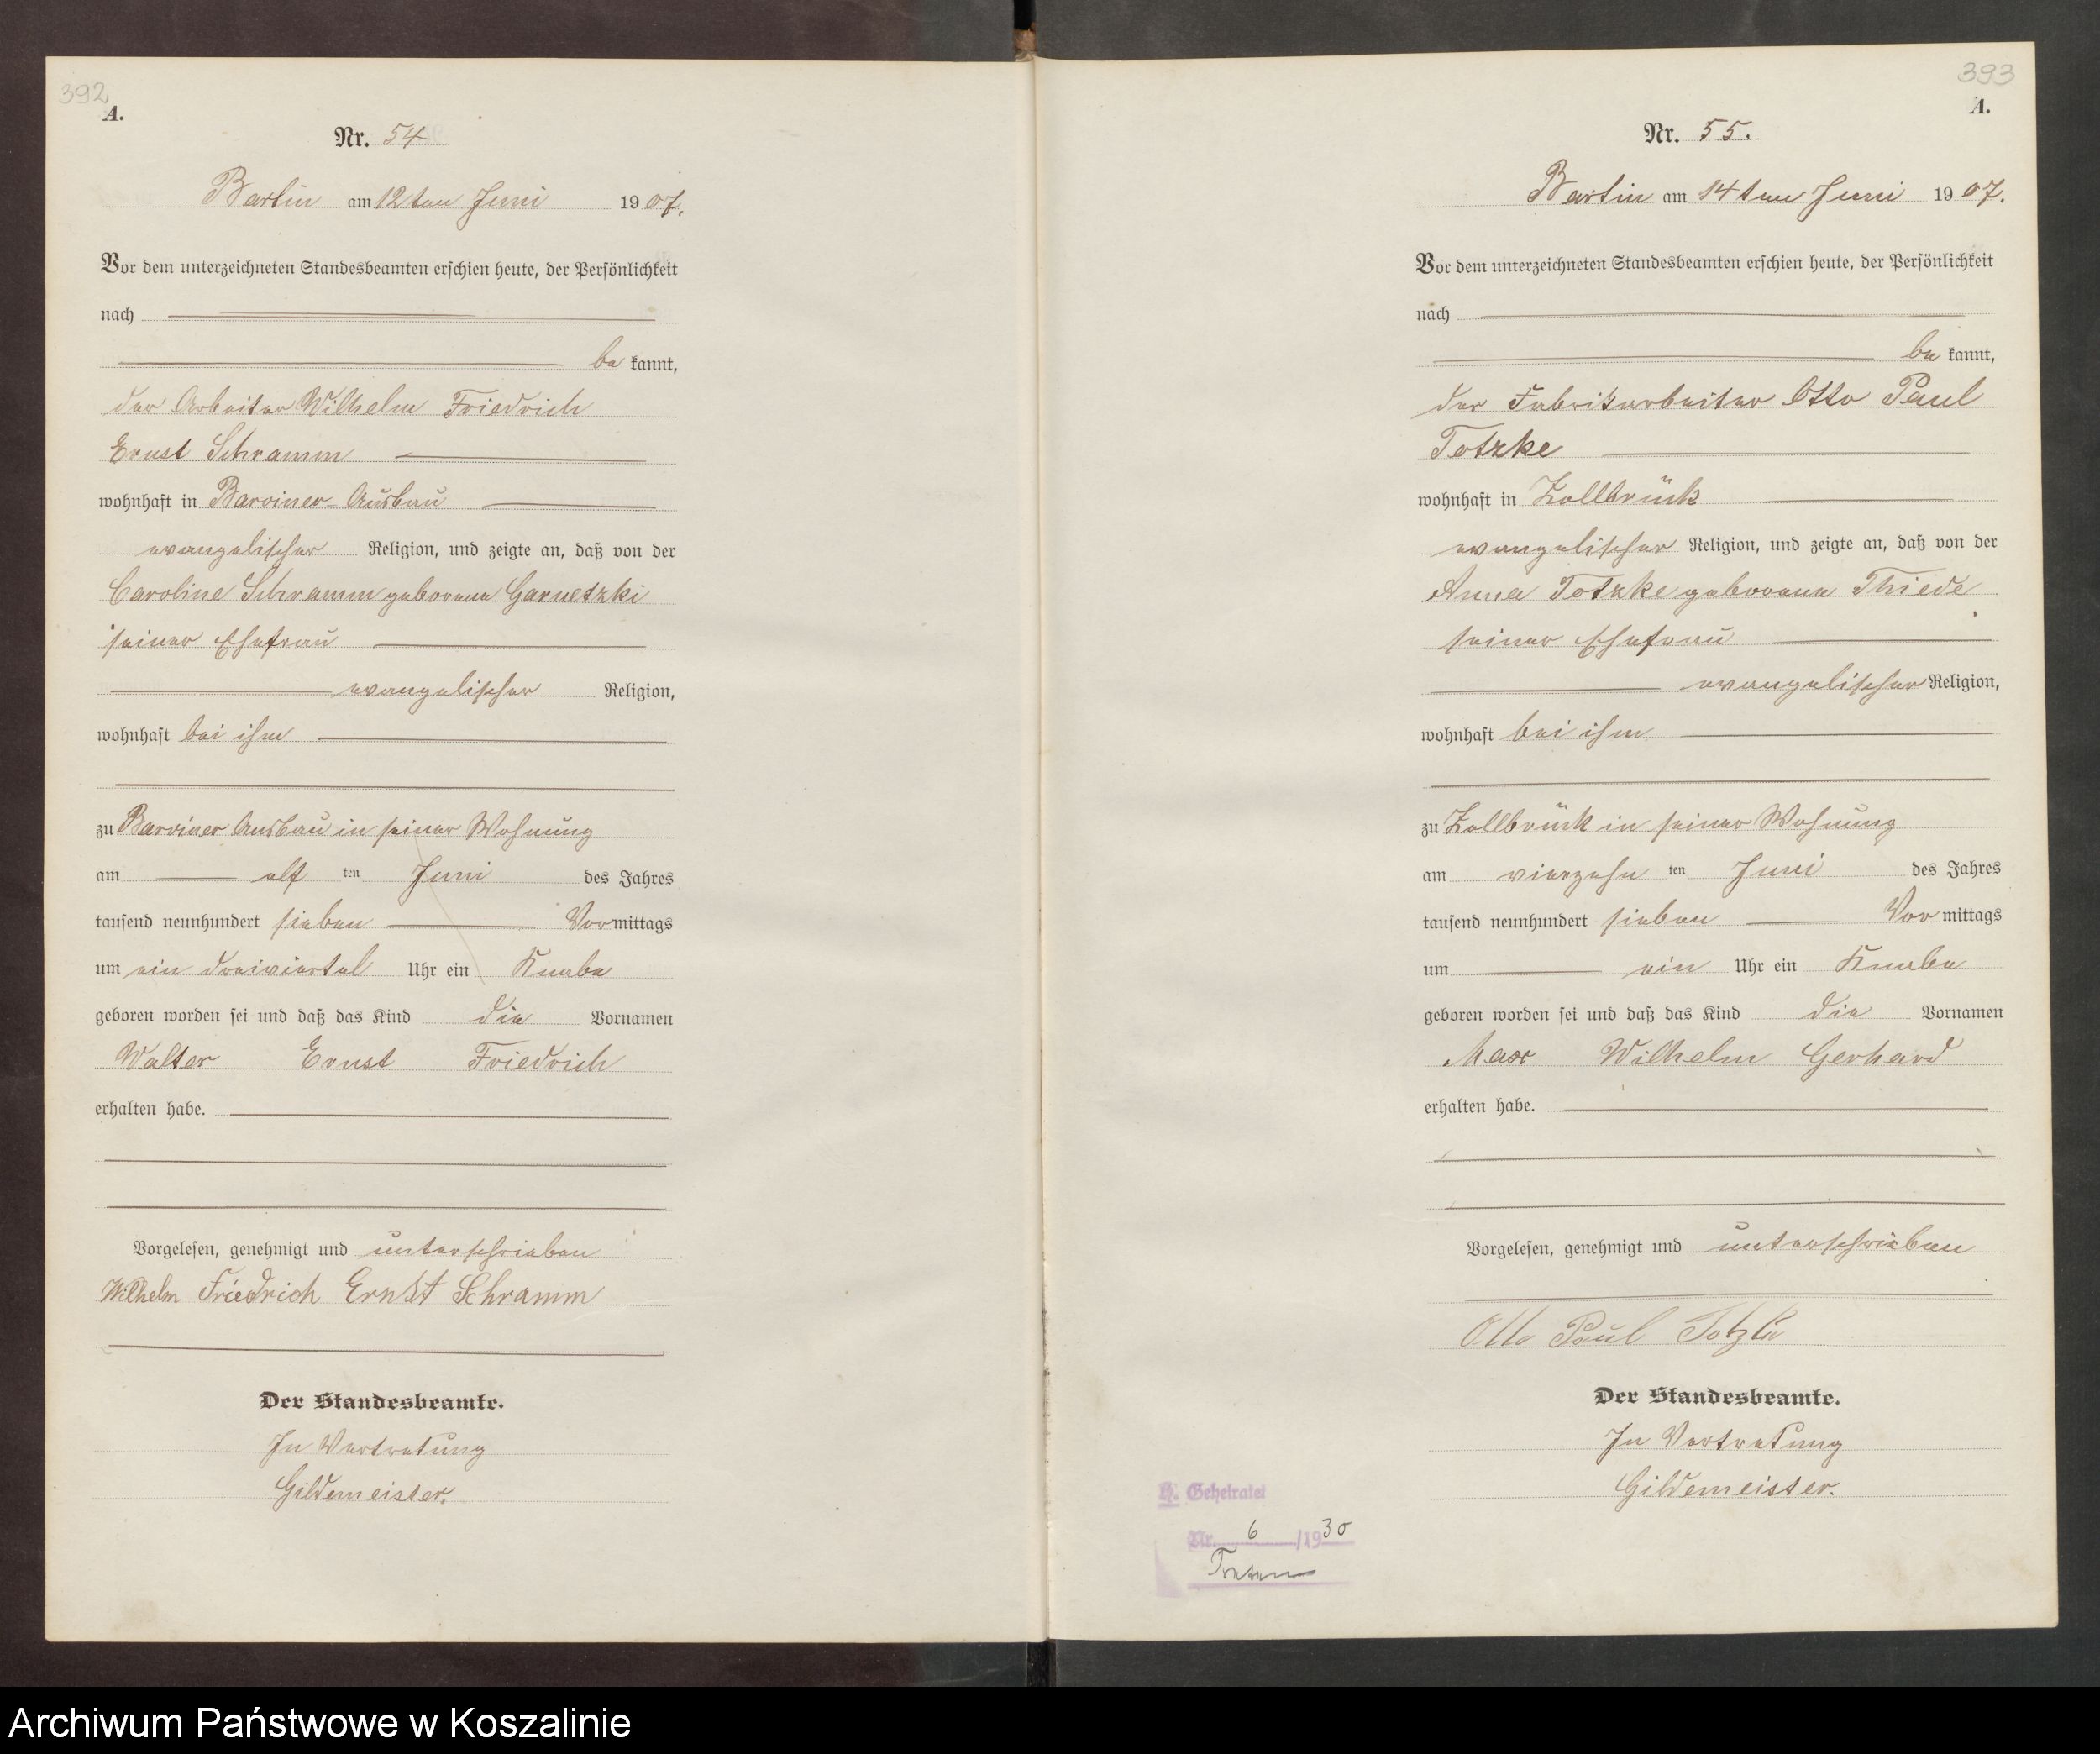 392
A.
Nr. 54
Bartin am 12ten Juni 1907.
Vor dem unterzeichneten Standesbeamten erschien heute, der Persönlichkeit
nach
be kannt,
der Arbeiter Wilhelm Friedrich
Ernst Schramm
wohnhaft in Barviner-Ausbau
evangelischer Religion, und zeigte an, daß von der
Caroline Schramm geborene Garnetzki
seiner Ehefrau
evangelischer Religion,
wohnhaft bei ihm
zu Barviner Ausbau in seiner Wohnung
am elf ten Juni des Jahres
tausend neunhundert sieben Vormittags
um ein dreiviertel Uhr ein Knabe
geboren worden sei und daß das Kind die Vornamen
Walter Ernst Friedrich
erhalten habe.
Vorgelesen, genehmigt und unterschrieben
Wilhelm Friedrich Ernst Schramm
Der Standesbeamte.
In Vertretung
Gildemeister.
393
A.
Nr. 55.
Bartin am 14ten Juni 1907.
Vor dem unterzeichneten Standesbeamten erschien heute, der Persönlichkeit
nach
be kannt,
der Fabrikarbeiter Otto Paul
Totzke
wohnhaft in Zollbrück
evangelischer Religion, und zeigte an, daß von der
Anna Totzke geborene Thiede
seiner Ehefrau
evangelischer Religion,
wohnhaft bei ihm
zu Zollbrück in seiner Wohnung
am vierzehn ten Juni des Jahres
tausend neunhundert sieben Vormittags
um ein Uhr ein Knabe
geboren worden sei und daß das Kind die Vornamen
Max Wilhelm Gerhard
erhalten habe.
Vorgelesen, genehmigt und unterschrieben
Otto Paul Totzke
Der Standesbeamte.
In Vertretung
Gildemeister.
H. Geheiratet
Nr. 6 /1930
Archiwum Państwowe w Koszalinie